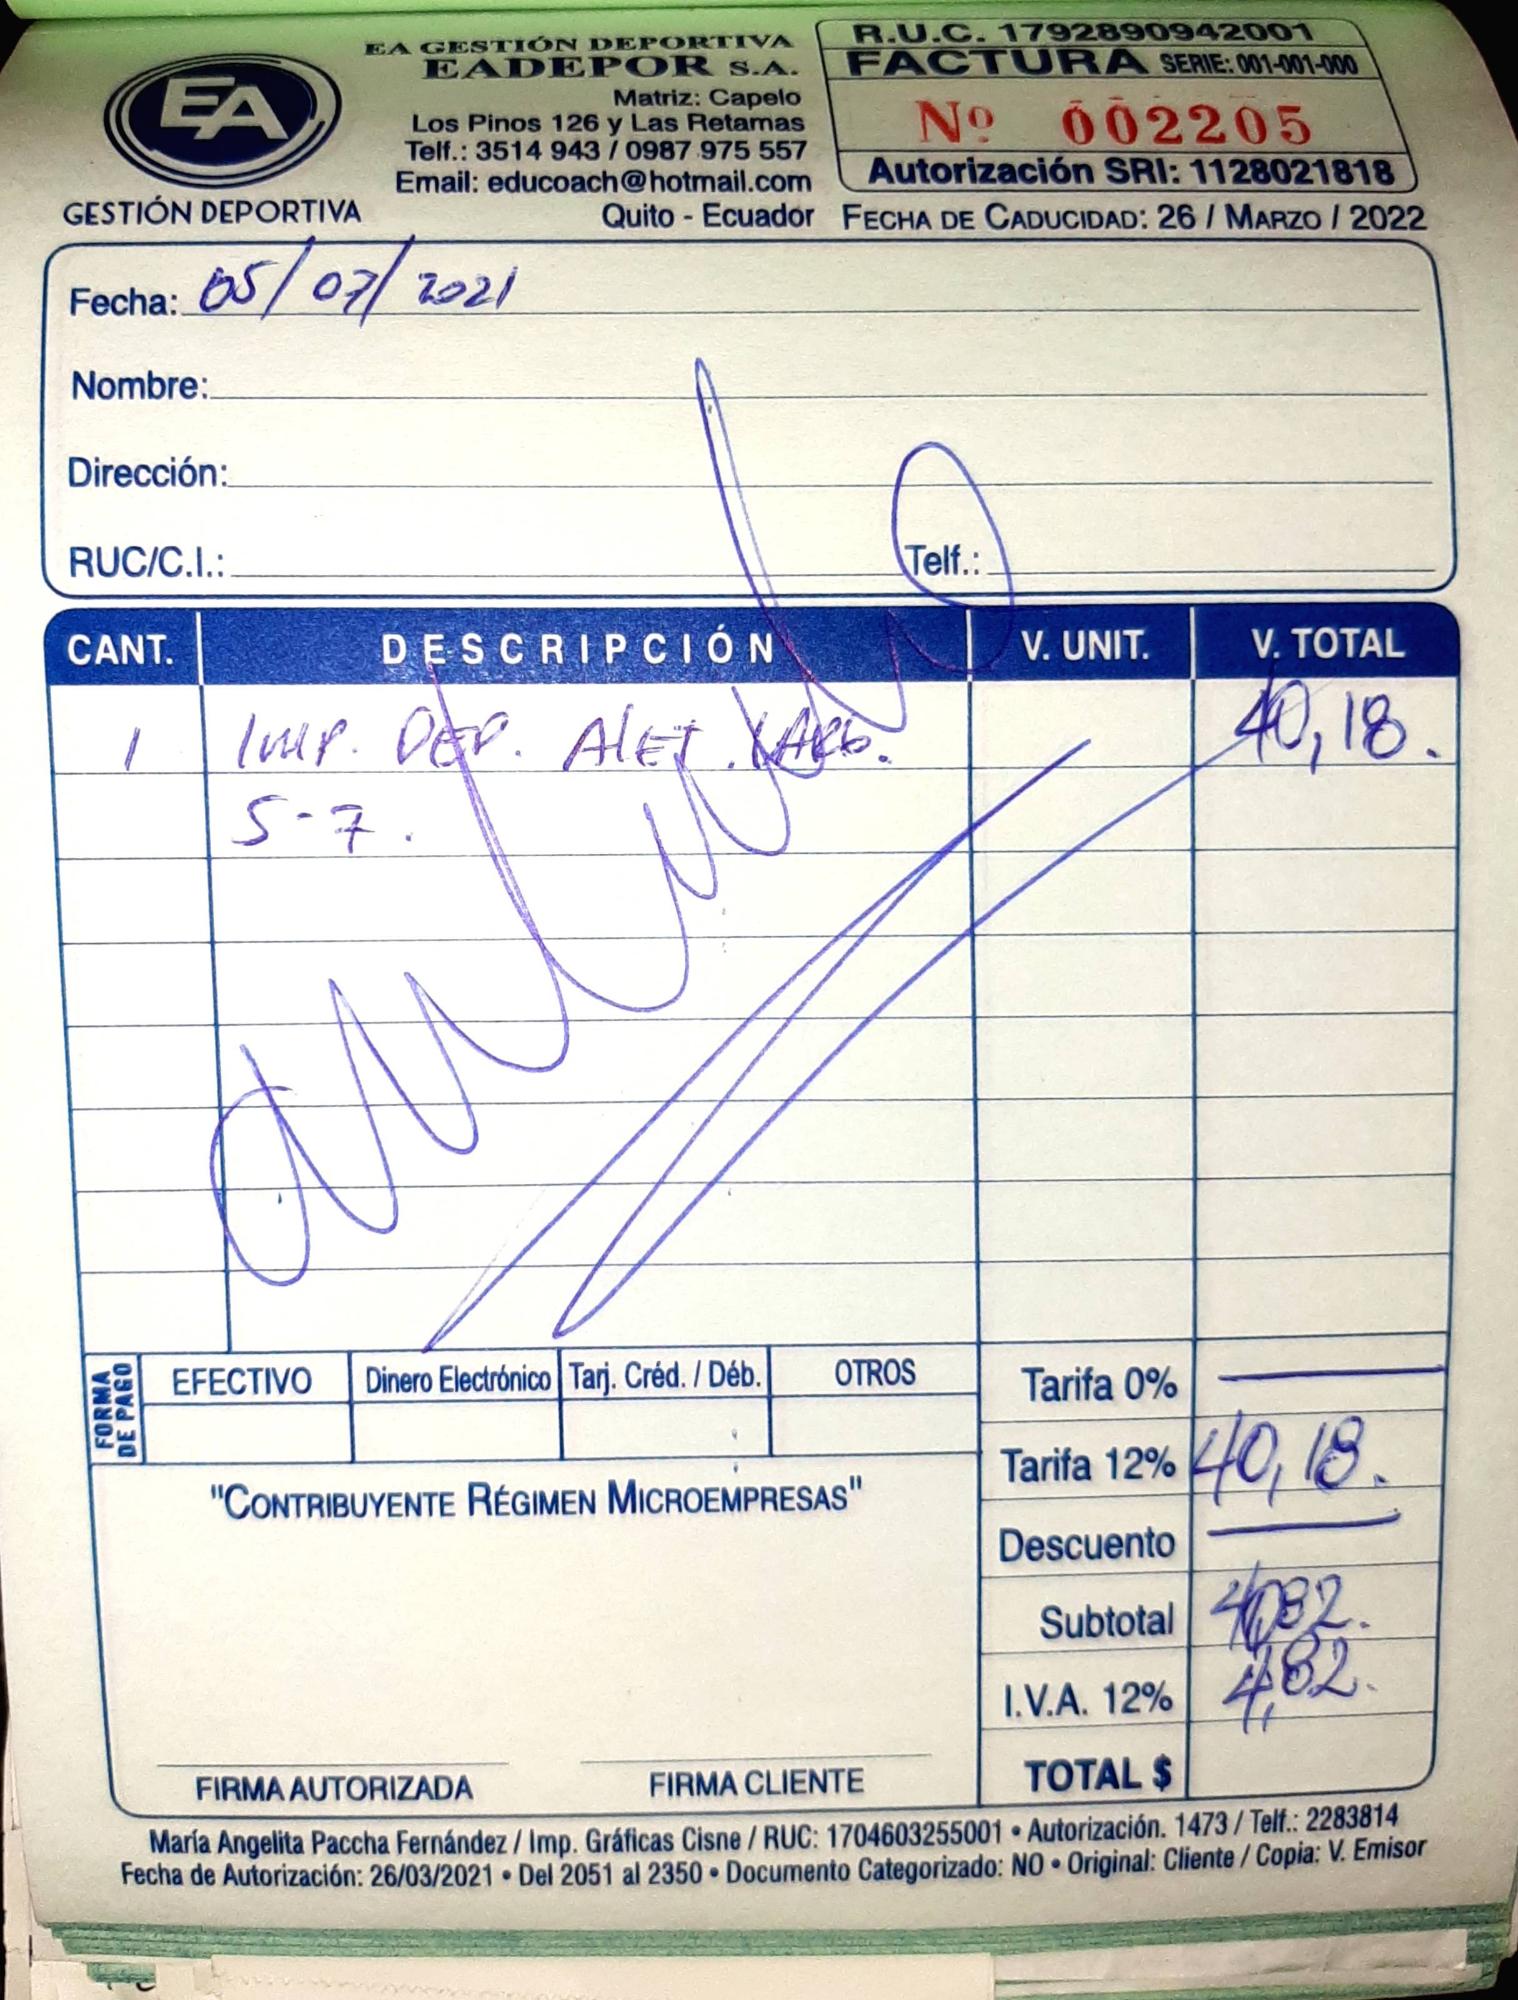 EA GESTIÓN DEPORTIVA
EADEPOR S.A.
Matriz: Capelo
Los Pinos 126 y Las Retamas
Telf.: 3514 943 / 0987 975 557
Email: educoach@hotmail.com
Quito - Ecuador
EA
GESTIÓN DEPORTIVA
R.U.C. 1792890942001
FACTURA SERIE: 001-001-000
Nº 002205
Autorización SRI: 1128021818
FECHA DE CADUCIDAD: 26 / MARZO / 2022
Fecha: 05/07/2021
Nombre:
Dirección:
RUC/C.I.: Telf.:
CANT. DESCRIPCIÓN V. UNIT. V. TOTAL
1 IMP. DEP. 40,18.
5-7.
Anulado
FORMA DE PAGO
EFECTIVO Dinero Electrónico Tarj. Créd. / Déb. OTROS
Tarifa 0%
Tarifa 12% 40,18.
Descuento
Subtotal
I.V.A. 12% 4,82.
TOTAL $
"CONTRIBUYENTE RÉGIMEN MICROEMPRESAS"
FIRMA AUTORIZADA FIRMA CLIENTE
María Angelita Paccha Fernández / Imp. Gráficas Cisne / RUC: 1704603255001 • Autorización. 1473 / Telf.: 2283814
Fecha de Autorización: 26/03/2021 • Del 2051 al 2350 • Documento Categorizado: NO • Original: Cliente / Copia: V. Emisor